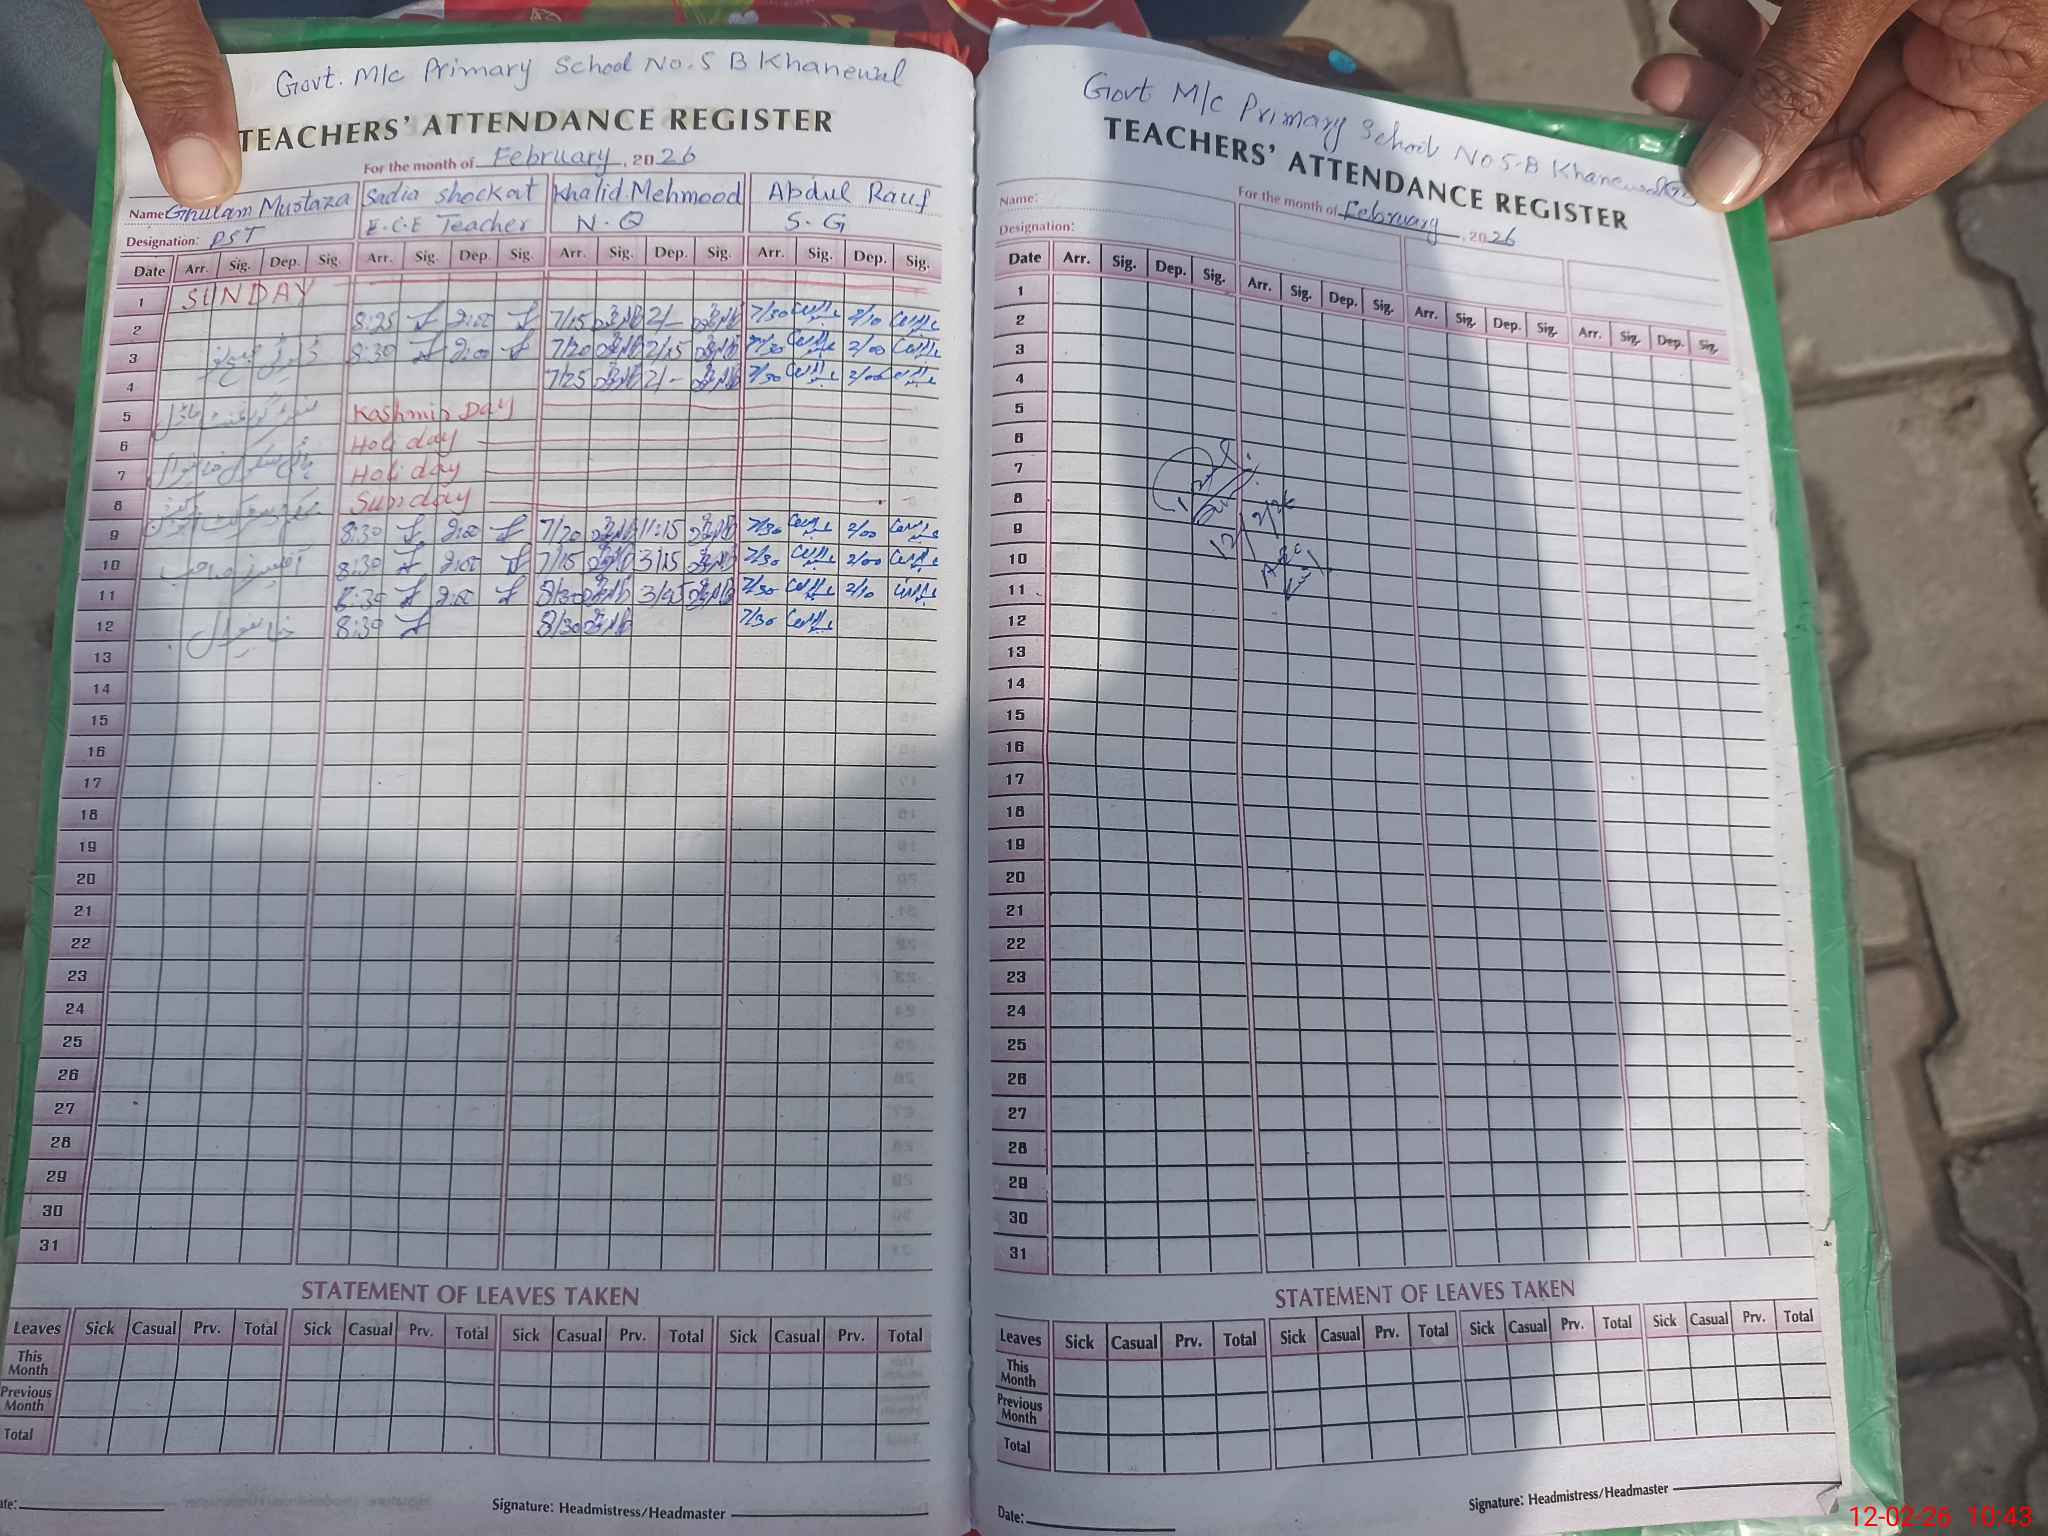 Govt. M/c Primary School No. 5 B Khanewal
TEACHERS' ATTENDANCE REGISTER
For the month of February, 2026
Name: Ghulam Mustaza Sadia shockat Khalid Mehmood Abdul Rauf
Designation: PST E.C.E Teacher N.Q S.G
Date Arr. Sig. Dep. Sig. Arr. Sig. Dep. Sig. Arr. Sig. Dep. Sig. Arr. Sig. Dep. Sig.
1 SUNDAY
2 8:25 2:00 7/15 2/- 7/30 2/10
3 8:30 2:00 7/20 2/15 7/30 2/00
4 7/25 2/- 7/30 2/00
5 Kashmir Day
6 Holiday
7 Holiday
8 Sunday
9 8:30 2:00 7/20 11:15 7/30 2/00
10 8:30 2:00 7/15 3/15 7/30 2/00
11 8:30 2:00 8/30 7/30 2/10
12 8:30 8/30 7/30
13
14
15
16
17
18
19
20
21
22
23
24
25
26
27
28
29
30
31
STATEMENT OF LEAVES TAKEN
Leaves Sick Casual Prv. Total Sick Casual Prv. Total Sick Casual Prv. Total Sick Casual Prv. Total
This Month
Previous Month
Total
Signature: Headmistress/Headmaster
Govt M/c Primary School No 5-B Khanewal
TEACHERS' ATTENDANCE REGISTER
For the month of February, 2026
Name:
Designation:
Date Arr. Sig. Dep. Sig. Arr. Sig. Dep. Sig. Arr. Sig. Dep. Sig. Arr. Sig. Dep. Sig.
1
2
3
4
5
6
7
8
9
10
11
12
13
14
15
16
17
18
19
20
21
22
23
24
25
26
27
28
29
30
31
12/2/26
STATEMENT OF LEAVES TAKEN
Leaves Sick Casual Prv. Total Sick Casual Prv. Total Sick Casual Prv. Total Sick Casual Prv. Total
This Month
Previous Month
Total
Date: Signature: Headmistress/Headmaster
12-02-26 10:43